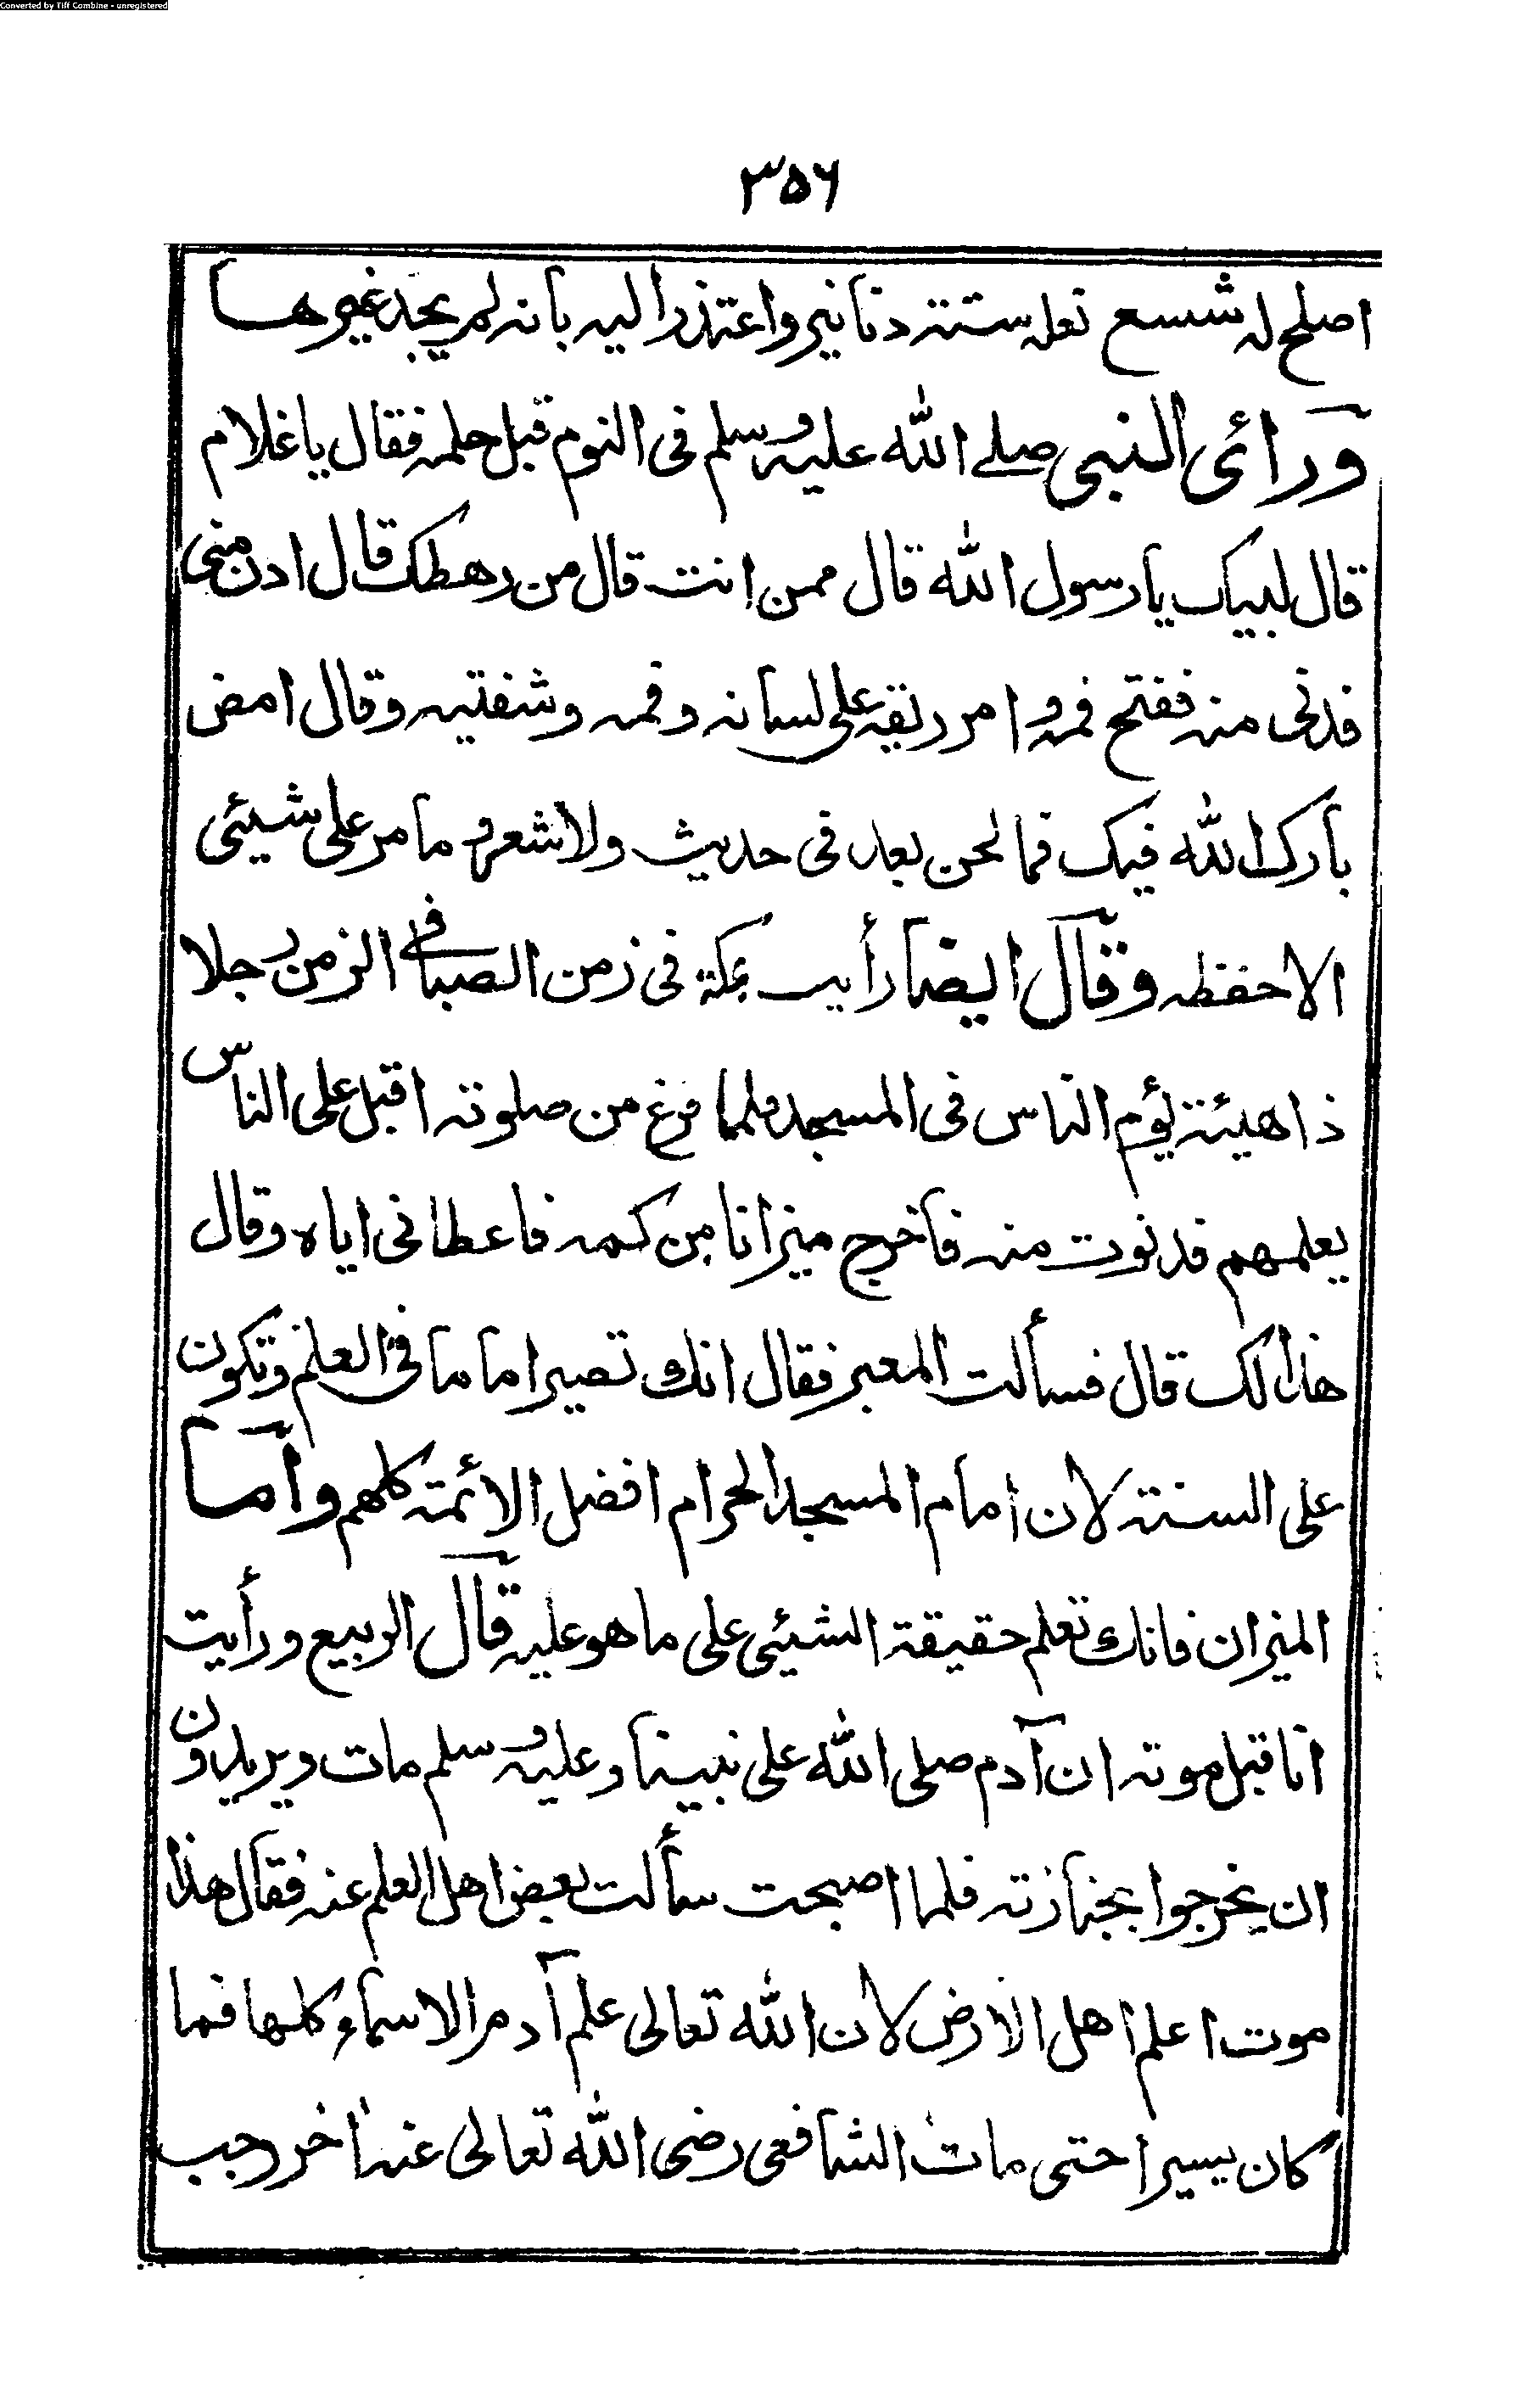 Converted by Tiff Combine - unregistered
٣٥٦
اصلح له شسع نعله ستة دنانير واعتذر اليه بانه لم يجد غيرها
ورائ النبى صلے الله عليه وسلم فى النوم قبل حلمه فقال يا غلام
قال لبيك يا رسول الله قال ممن انت قال من رهطك قال ادن منى
فدنى منه ففتح فمه وامر ريقه على لسانه وفمه وشفتيه وقال امض
بارك الله فيك فما لحن بعد فى حديث ولا شعر وما مر على شيئى
الا حفظه وقال ايضا رأيت بمكة فى زمن الصبا فى الزمن رجلا
ذا هيئة يؤم الناس فى المسجد فلما فرغ من صلوته اقبل على الناس
يعلمهم فدنوت منه فاخرج ميزانا من كمه فاعطانى اياه وقال
هذا لك قال فسألت المعبر فقال انك تصير اماما فى العلم وتكون
على السنة لان امام المسجد الحرام افضل الائمة كلهم واما
الميزان فانك تعلم حقيقة الشيئى على ما هو عليه قال الربيع ورأيت
انا قبل موته ان آدم صلى الله على نبينا وعليه وسلم مات ويريدون
ان يخرجوا بجنازته فلما اصبحت سألت بعض اهل العلم عنه فقال هذا
موت اعلم اهل الارض لان الله تعالى علم آدم الاسماء كلها فما
كان يسيرا حتى مات الشافعى رضى الله تعالى عنه آخر رجب